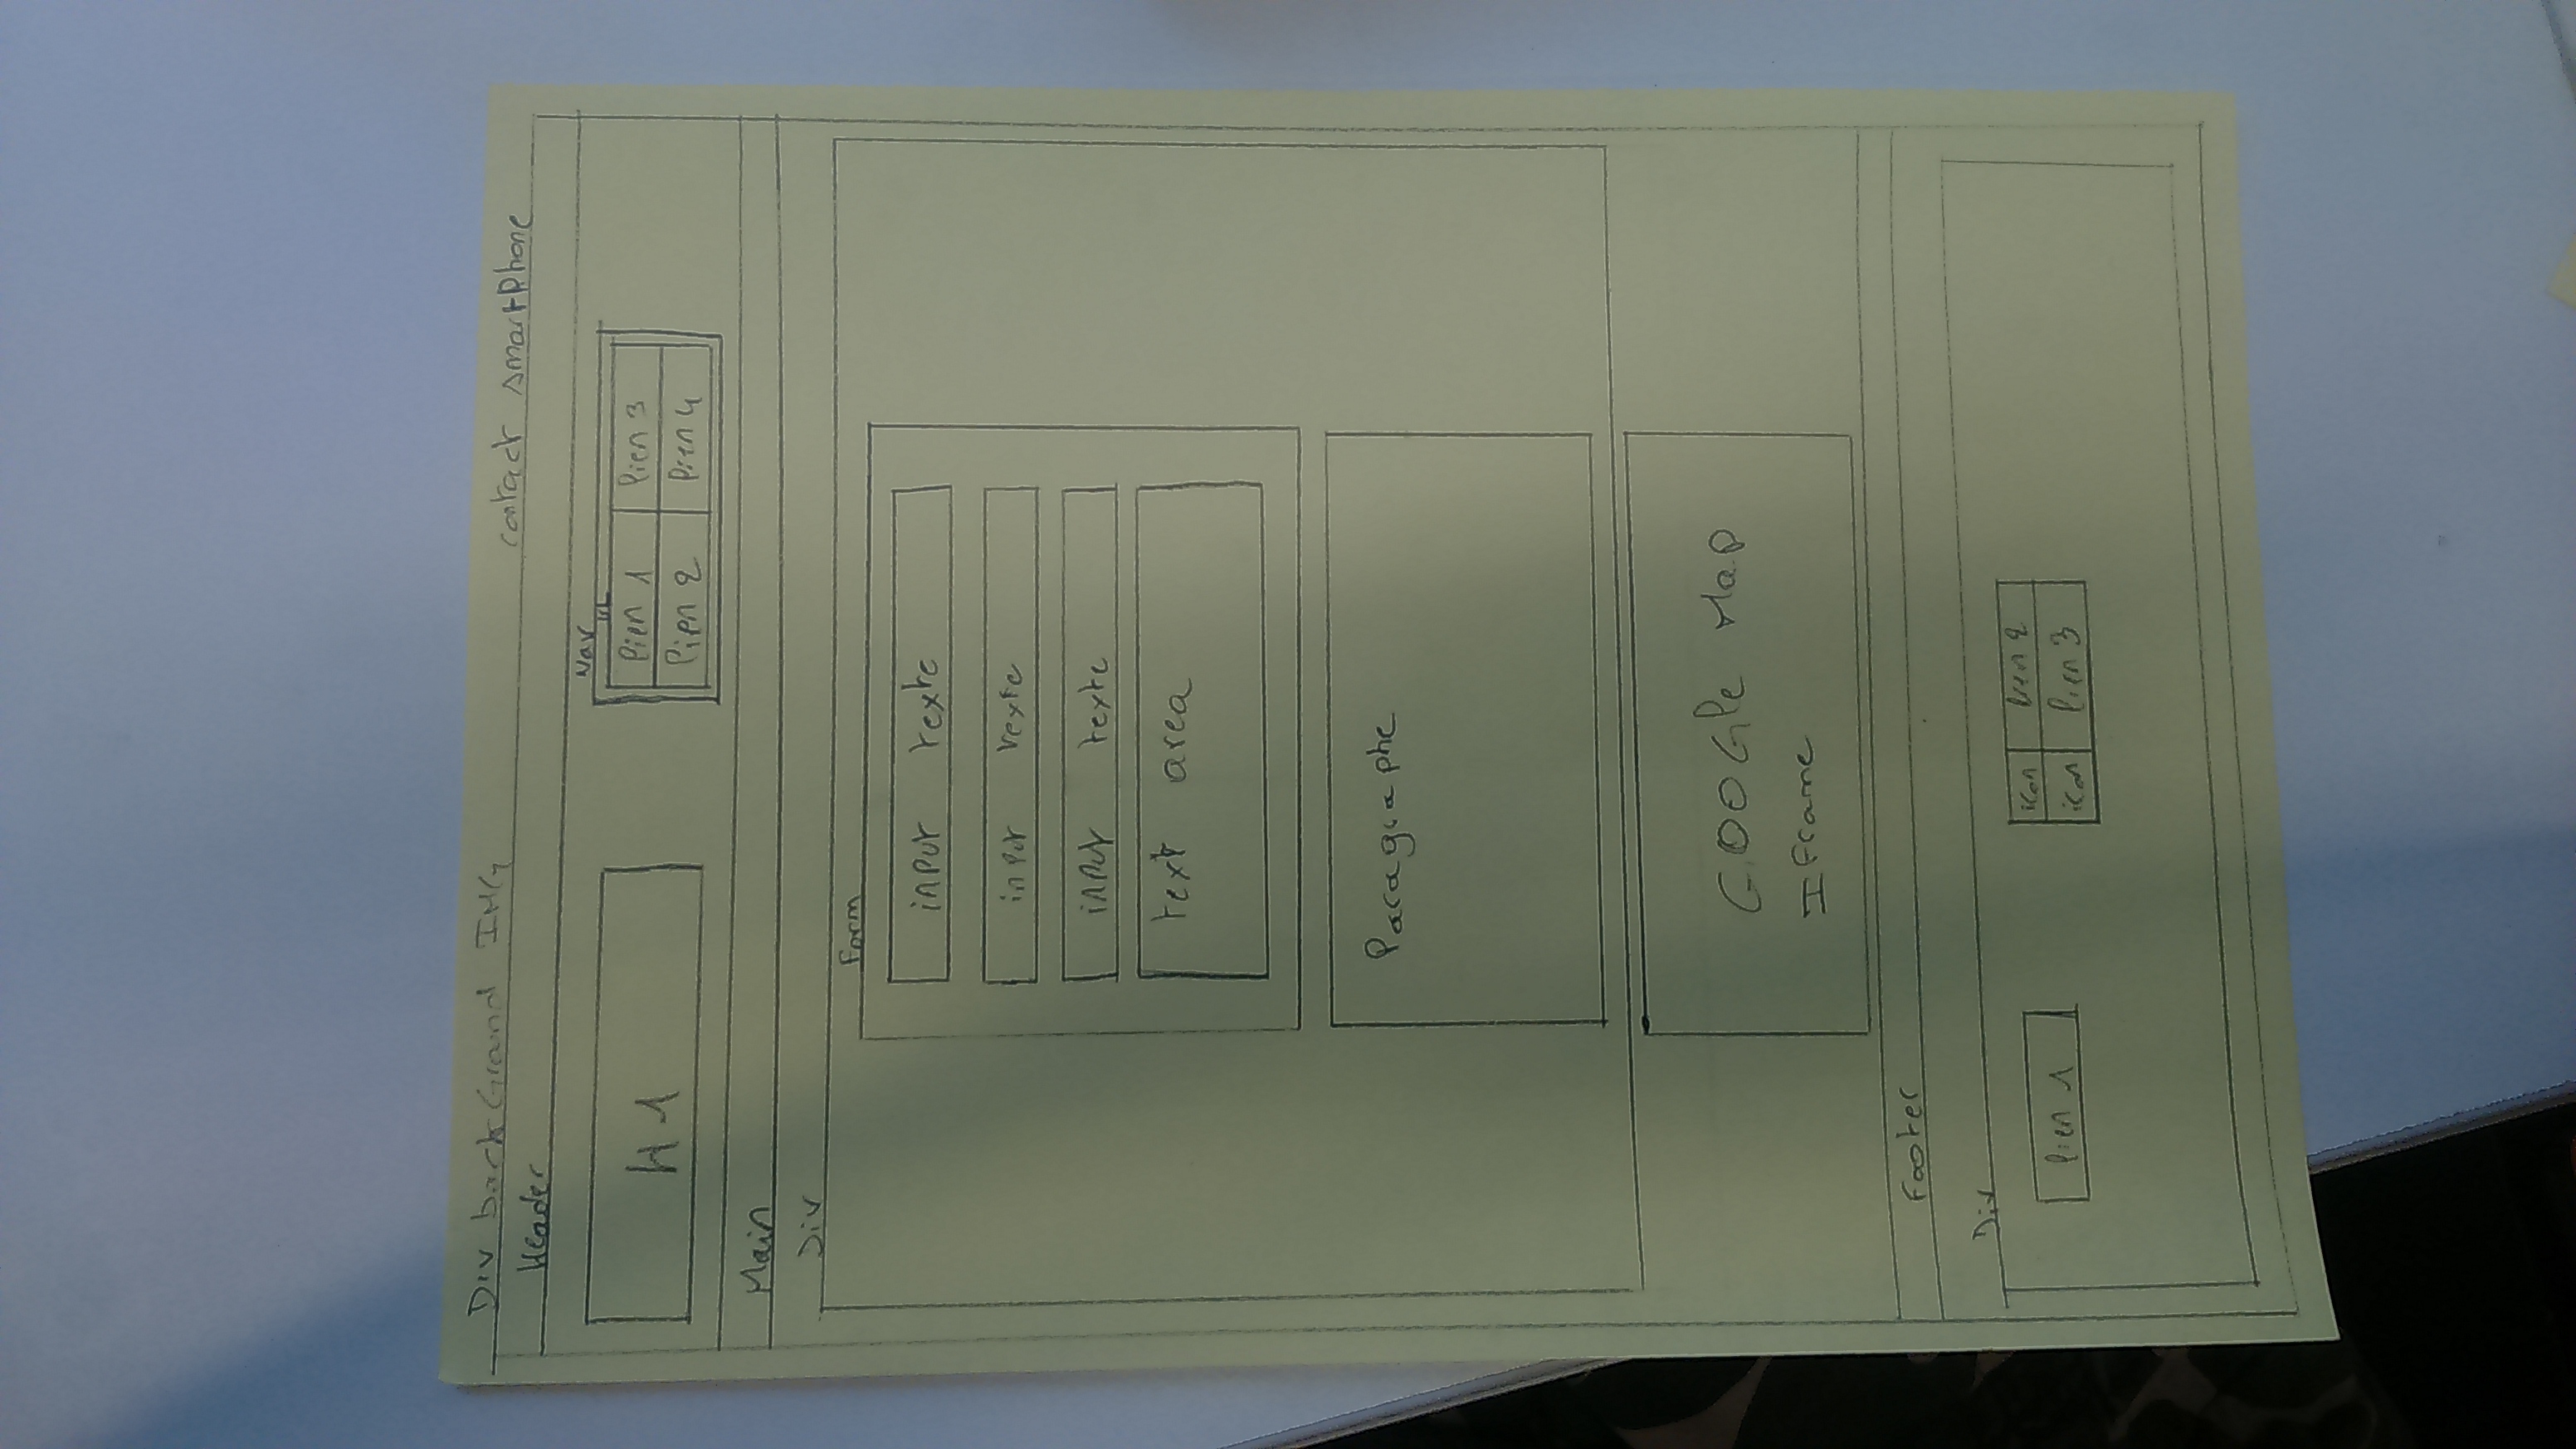 Div backGround IMG
contact smartPhone
Header
H1
Nav
UL
lien 1 lien 3
lien 2 lien 4
Main
Div
Form
input texte
input texte
input texte
text area
Paragraphe
GOOGle Map
IFrame
Footer
Div
lien 1
icon lien 2
icon lien 3